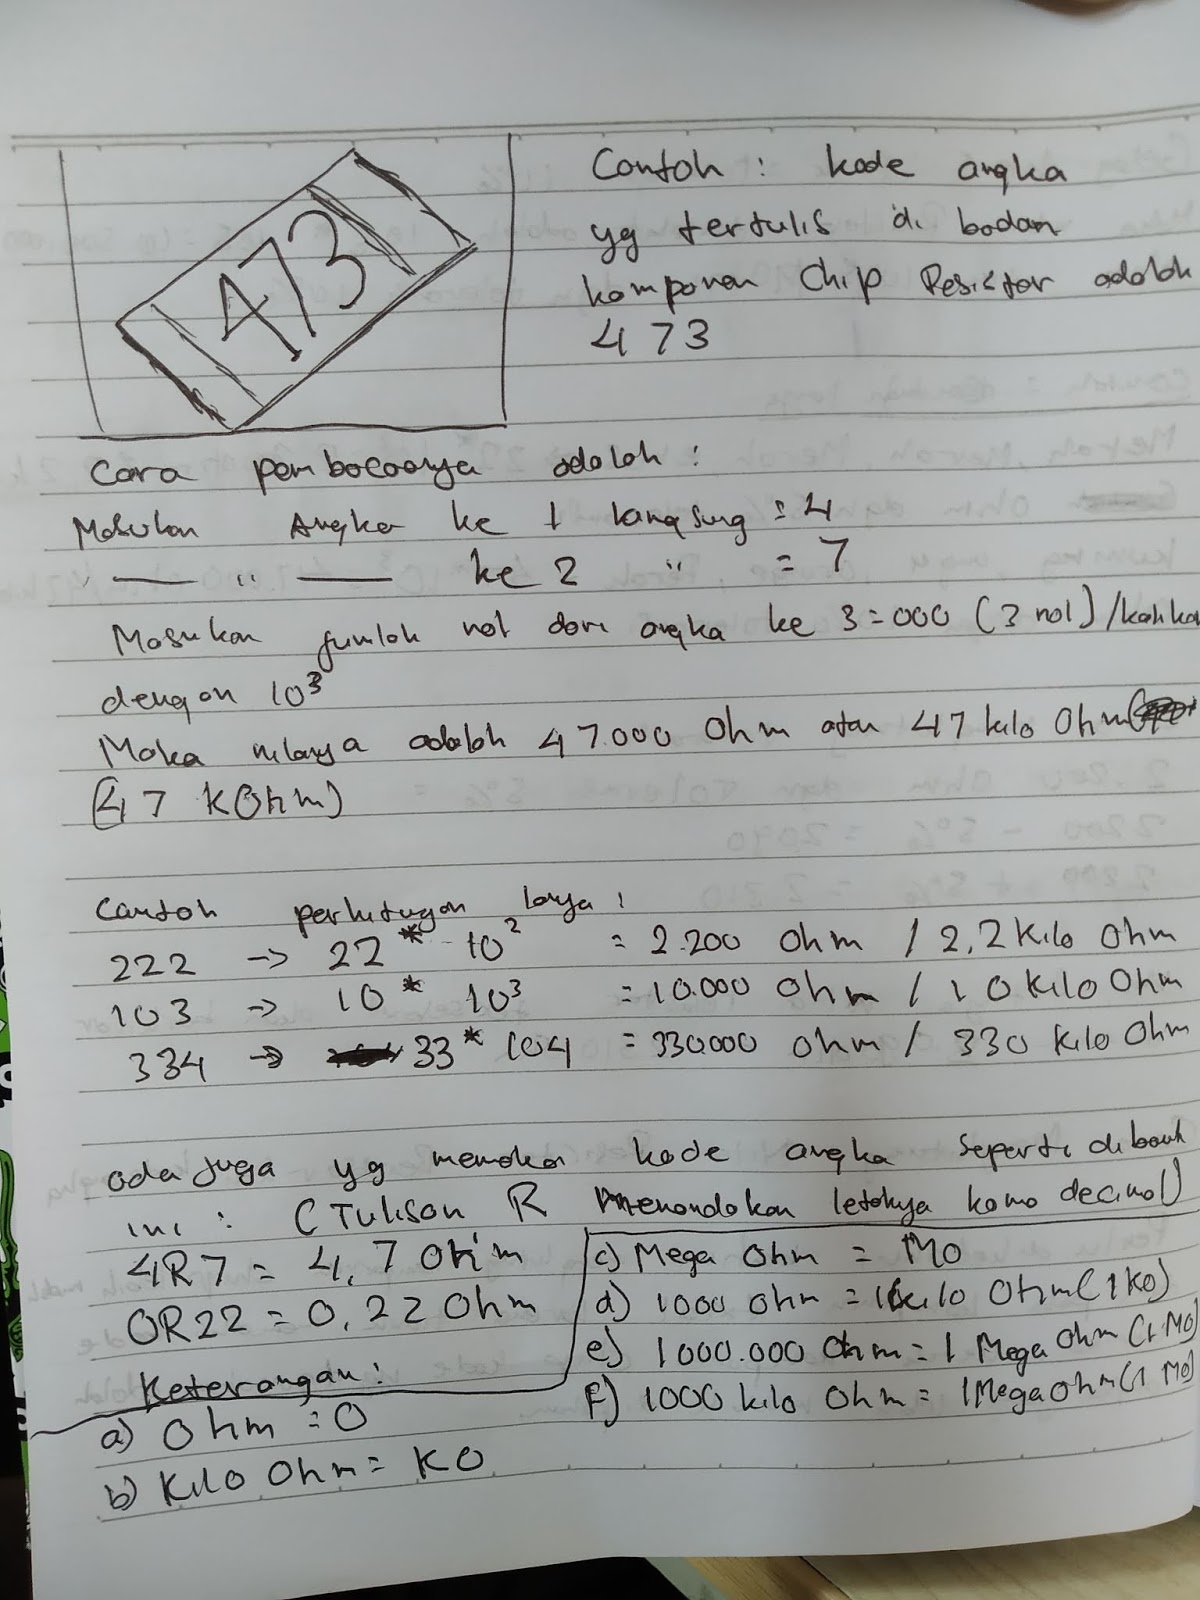 473
Contoh : kode angka
yg tertulis di badan
komponen Chip Resistor adalah
473
Cara pembacanya adalah :
Masukan Angka ke 1 langsung = 4
— " — ke 2 " = 7
Masukan jumlah nol dari angka ke 3 = 000 (3 nol) / kalikan
dengan 10³
Maka nilanya adalah 47.000 Ohm atau 47 kilo Ohm
(47 KOhm)
Contoh perhitugan lanya :
222 -> 22 * 10² = 2.200 Ohm / 2,2 Kilo Ohm
103 -> 10 * 10³ = 10.000 Ohm / 10 Kilo Ohm
334 -> 33 * 104 = 330.000 ohm / 330 Kilo Ohm
ada juga yg memakai kode angka seperti dibawah
ini : (Tulisan R Menandakan letaknya koma decimal)
4R7 = 4,7 Ohm
0R22 = 0,22 Ohm
Keterangan :
a) Ohm = O
b) Kilo Ohm = KO
c) Mega Ohm = MO
d) 1000 ohm = 1 kilo Ohm (1 KO)
e) 1000.000 Ohm = 1 Mega Ohm (1 MO)
f) 1000 kilo Ohm = 1 Mega Ohm (1 MO)